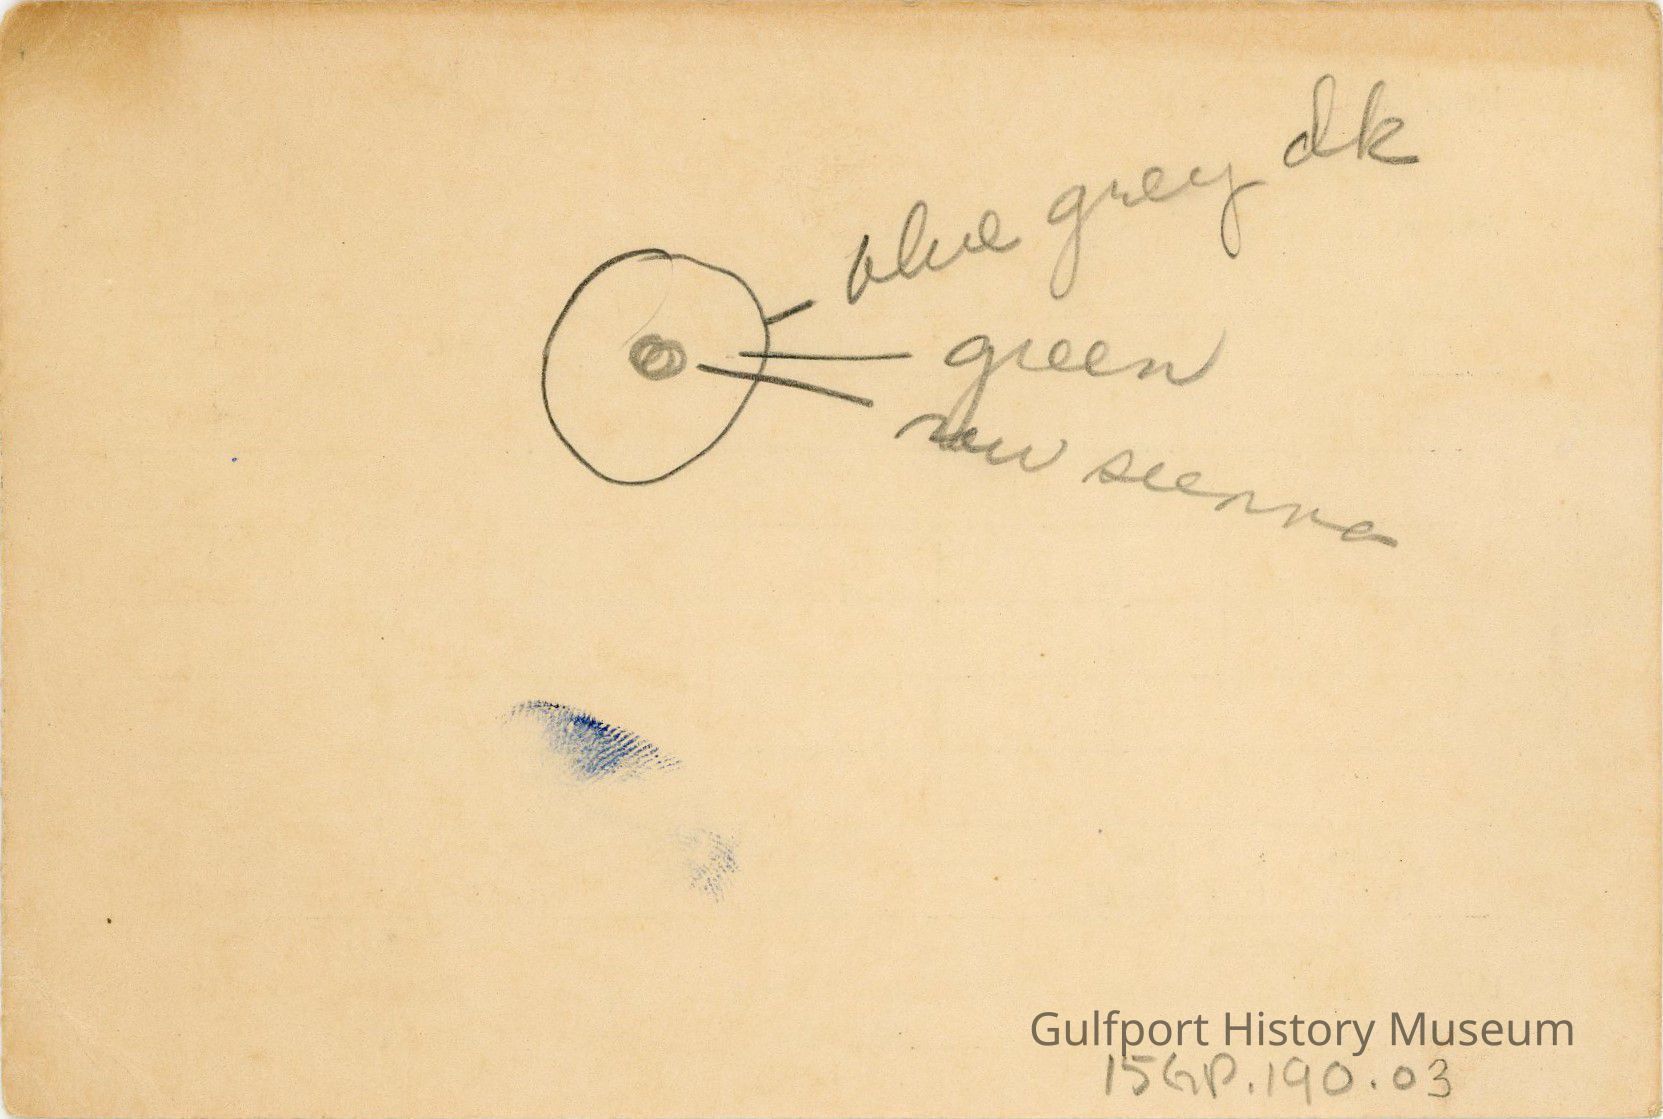 blue grey dk
green
raw seenna
Gulfport History Museum
15GP.190.03